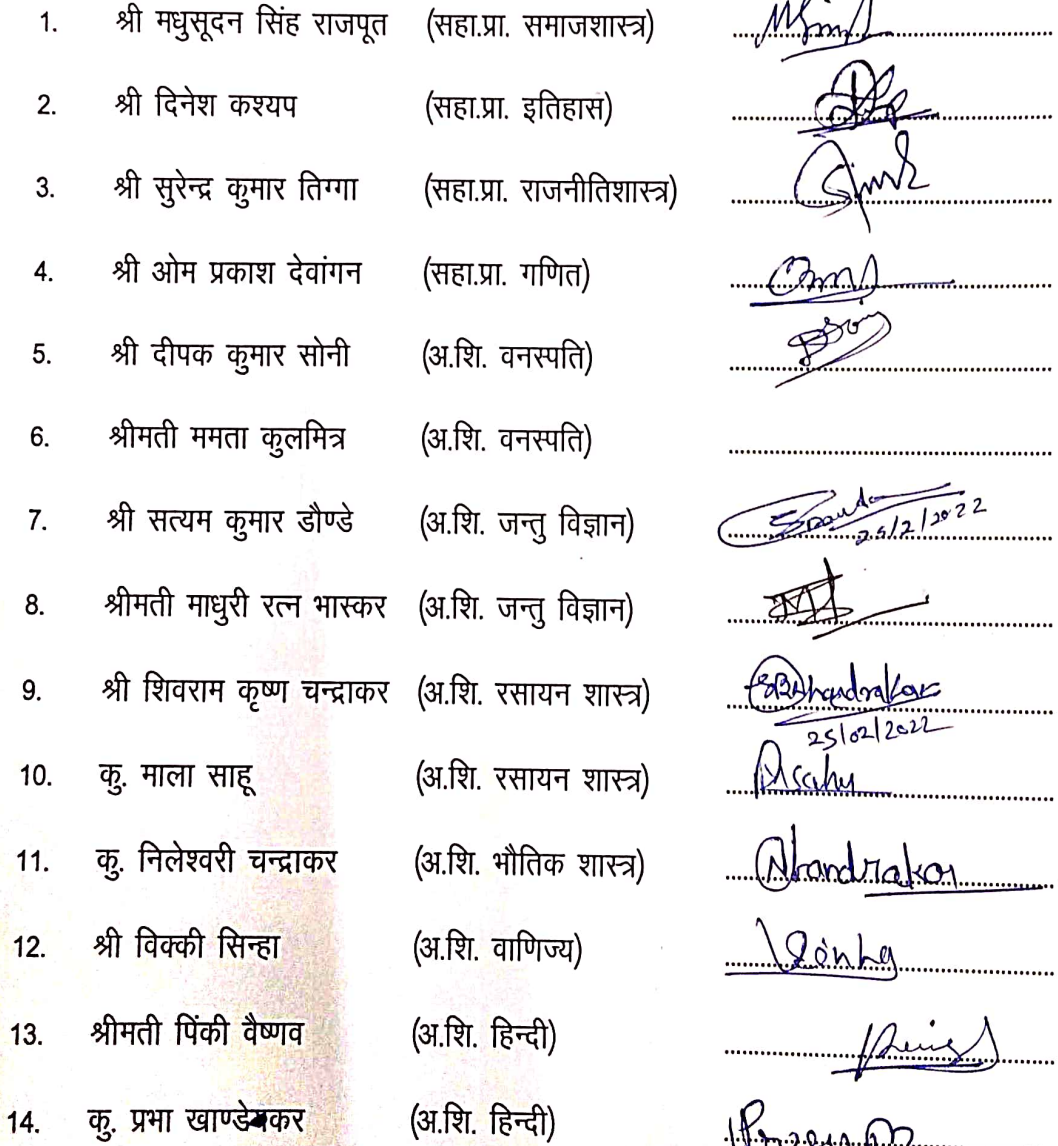 1. श्री मधुसूदन सिंह राजपूत (सहा.प्रा. समाजशास्त्र)
2. श्री दिनेश कश्यप (सहा.प्रा. इतिहास)
3. श्री सुरेन्द्र कुमार तिग्गा (सहा.प्रा. राजनीतिशास्त्र)
4. श्री ओम प्रकाश देवांगन (सहा.प्रा. गणित)
5. श्री दीपक कुमार सोनी (अ.शि. वनस्पति)
6. श्रीमती ममता कुलमित्र (अ.शि. वनस्पति)
7. श्री सत्यम कुमार डौण्डे (अ.शि. जन्तु विज्ञान)
25/2/2022
8. श्रीमती माधुरी रत्न भास्कर (अ.शि. जन्तु विज्ञान)
9. श्री शिवराम कृष्ण चन्द्राकर (अ.शि. रसायन शास्त्र)
25/02/2022
10. कु. माला साहू (अ.शि. रसायन शास्त्र)
11. कु. निलेश्वरी चन्द्राकर (अ.शि. भौतिक शास्त्र)
12. श्री विक्की सिन्हा (अ.शि. वाणिज्य)
13. श्रीमती पिंकी वैष्णव (अ.शि. हिन्दी)
14. कु. प्रभा (अ.शि. हिन्दी)